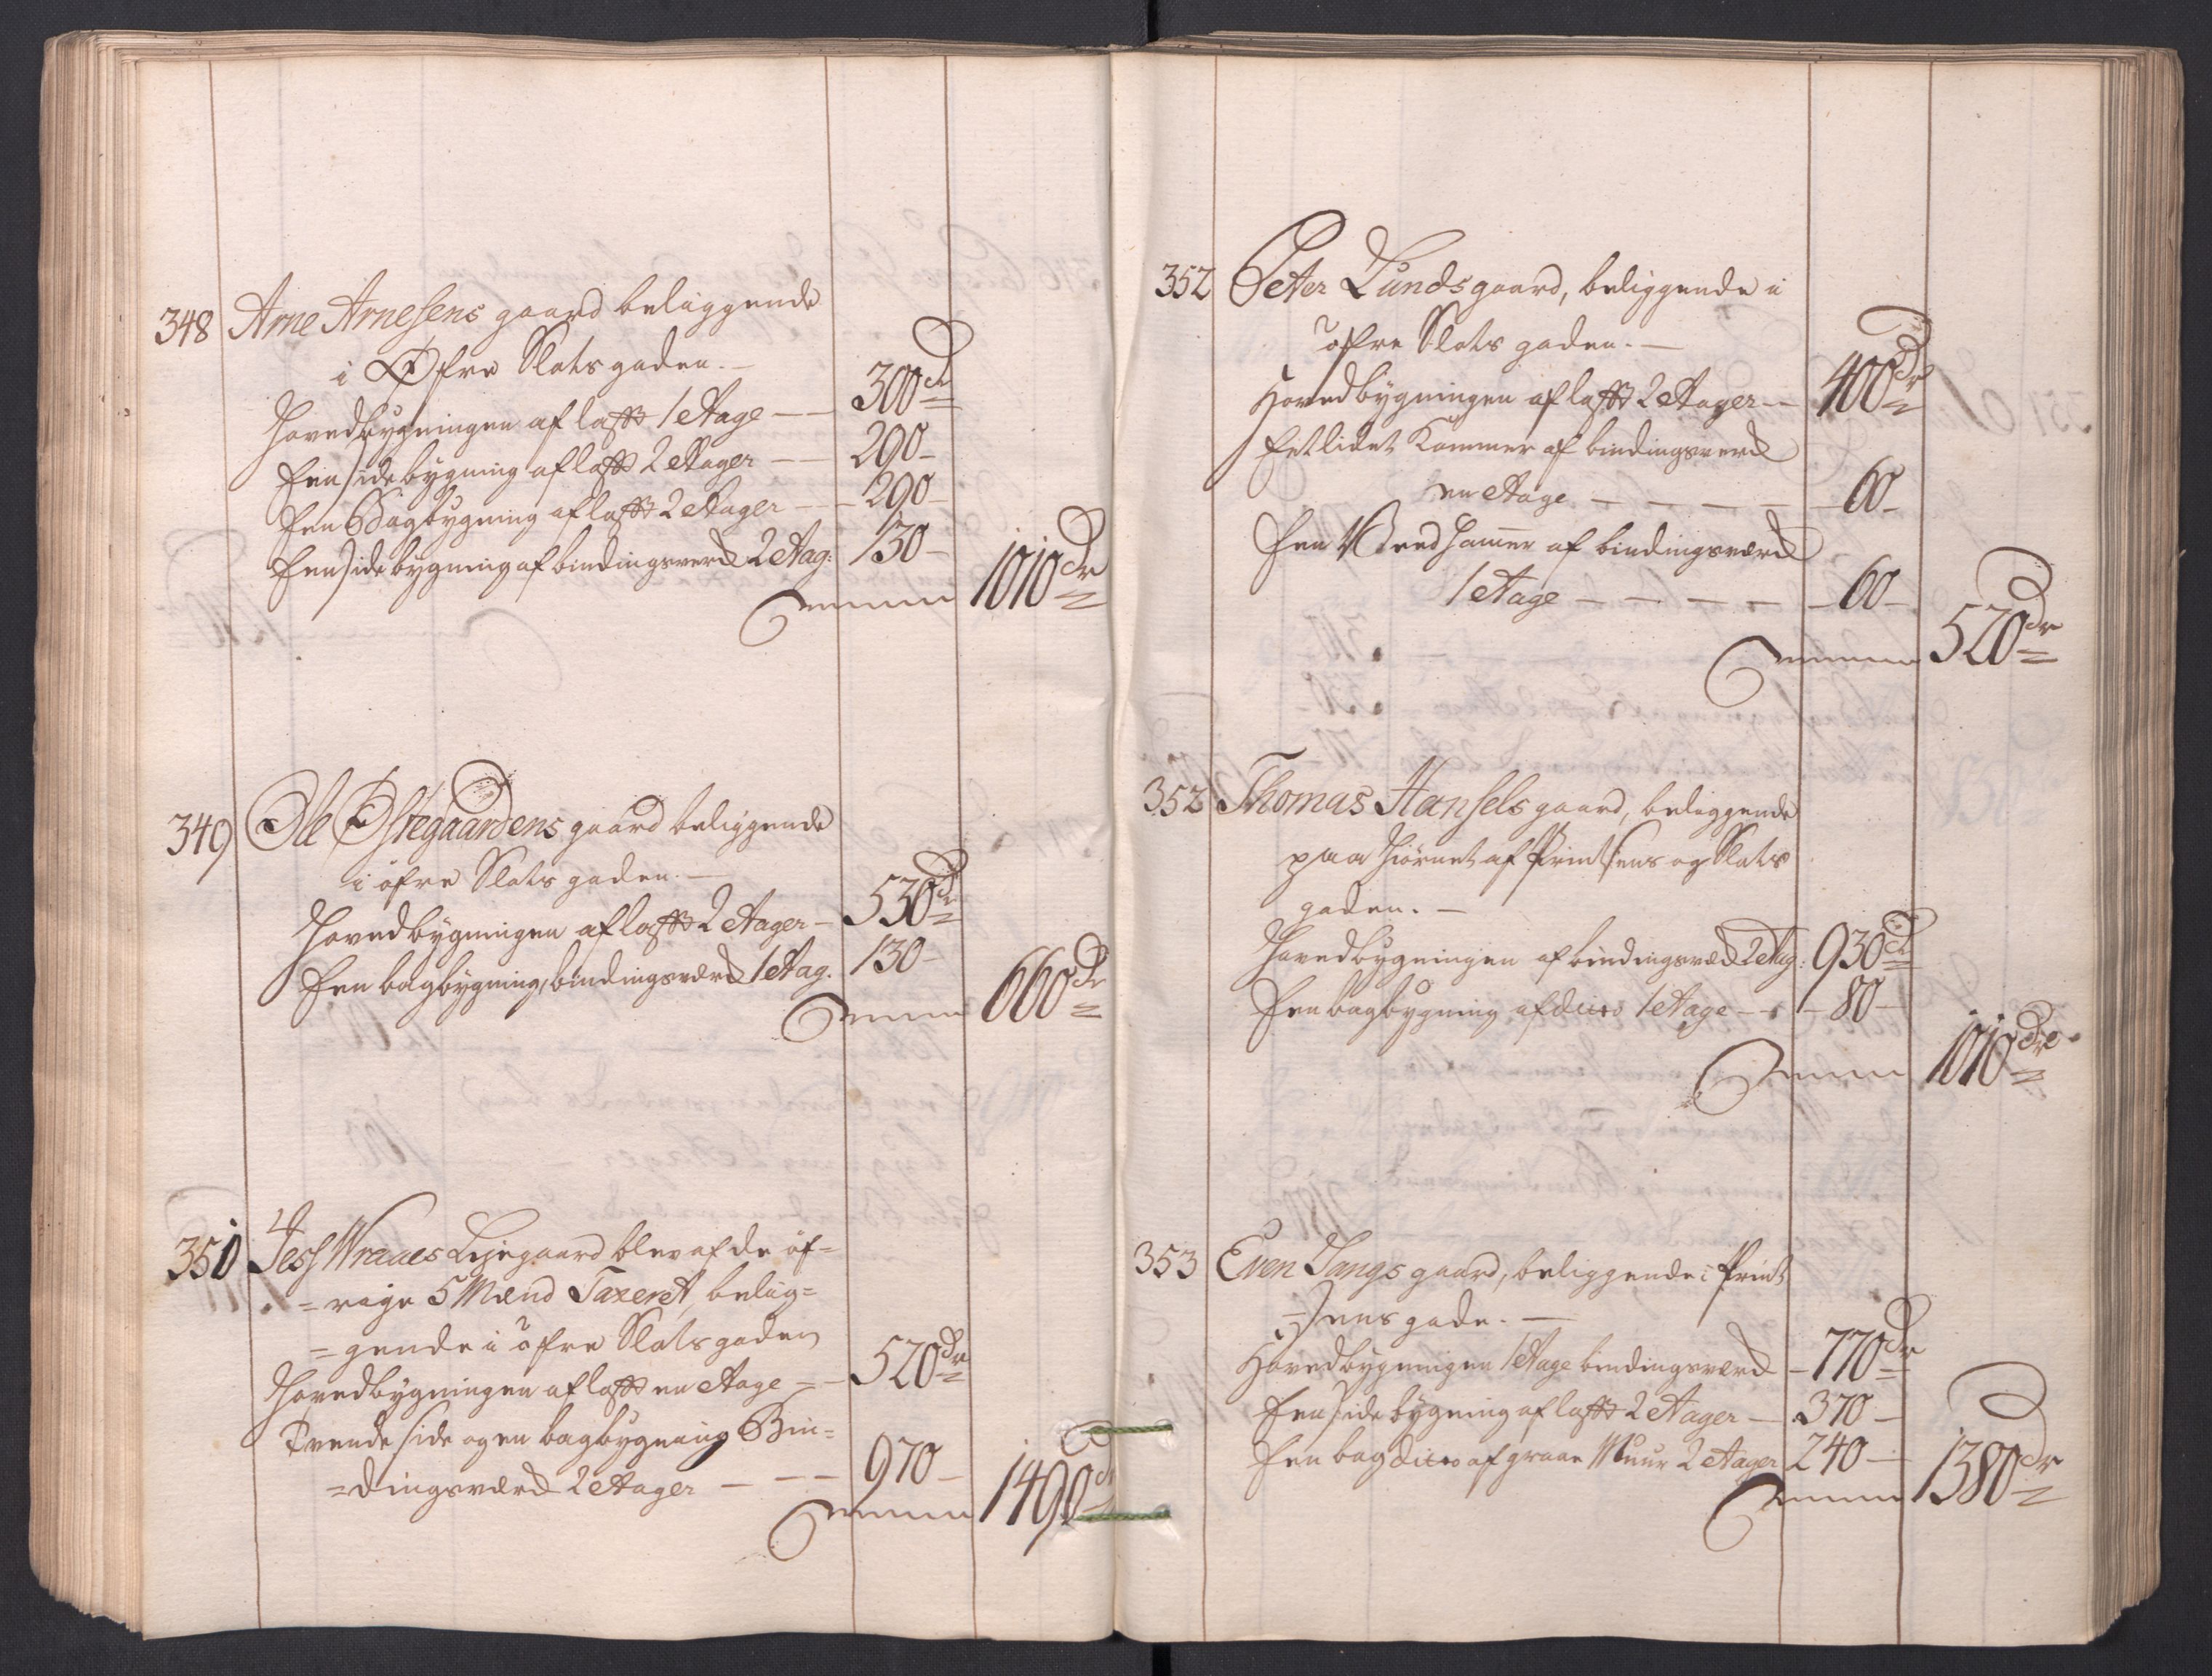 348 Arne Arnesens gaard beliggende
i Øfre Slots gaden. —
Hovedbygningen af lafft 1 Etage — — 300 dr
Een side bygning af lafft 2 Etager — — 290 -
Een Bagbygning af lafft 2 Etager — — 290 -
Een side bygning af bindingsverck 2 Etag: 130 -
Summa 1010 dr
349 Ole Østegaardens gaard beliggende
i öfre Slots gaden. —
Hovedbygningen af lafft 2 Etager — 530 dr
Een bagbygning, bindingsværck 1 Etag. 130 -
Summa 660 dr
351 Jess Wraaes Lejegaard blev af de öf=
=rige 5 Mænd Taxeret, belig=
=gende i öfre Slots gaden
Hovedbygningen af lafft en Etage — — 520 dr
Tvende side og en bagbygning Bin=
=dingsværck 2 Etager — — — 970 -
Summa 1490 dr
352 Peter Lunds gaard, beliggende i
öfre Slots gaden. —
Hovedbygningen af lafft 2 Etager — 400 dr
Eet lidet Kammer af bindingsverck
en Etage — — — — 60 -
Een Weed Hammer af bindingsværck
1 Etage — — — — 60 -
Summa 520 dr
352 Thomas Hansels gaard, beliggende
paa Hiörnet af Printsens og Slots
gaden. —
Hovedbygningen af bindingsverck 2 Etag: 930 dr
Een bagbygning af dito 1 Etage — - 80 -
Summa 1010 dr
353 Even Langs gaard, beliggende i Print
=sens gade. —
Hovedbygningen 1 Etage bindingsverck - 770 dr
Een side bygning af lafft 2 Etager — 370 —
Een bag dito af graae Muur 2 Etager 240 —
Summa 1380 dr